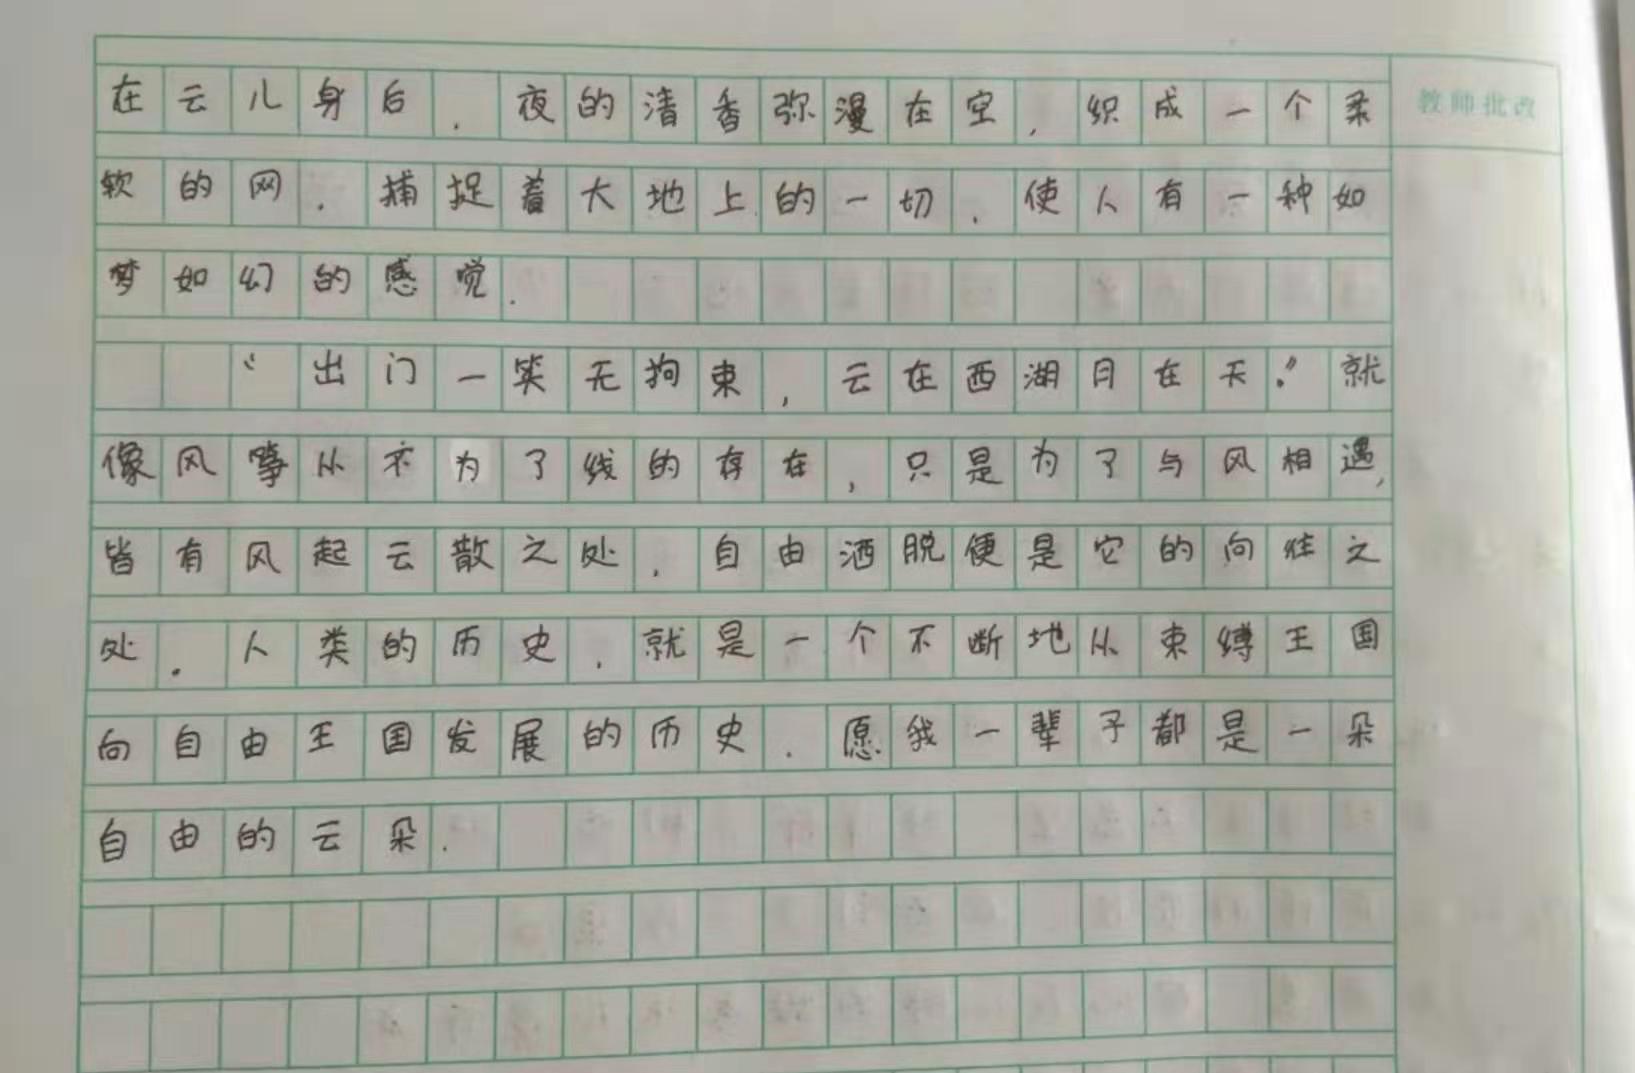 在云儿身后.夜的清香弥漫在空,织成一个柔
教师批改
软的网.捕捉着大地上的一切.使人有一种如
梦如幻的感觉.
“出门一笑无拘束,云在西湖月在天。”就
像风筝从不为了线的存在,只是为了与风相遇,
皆有风起云散之处.自由洒脱便是它的向往之
处.人类的历史.就是一个不断地从束缚王国
向自由王国发展的历史.愿我一辈子都是一朵
自由的云朵.